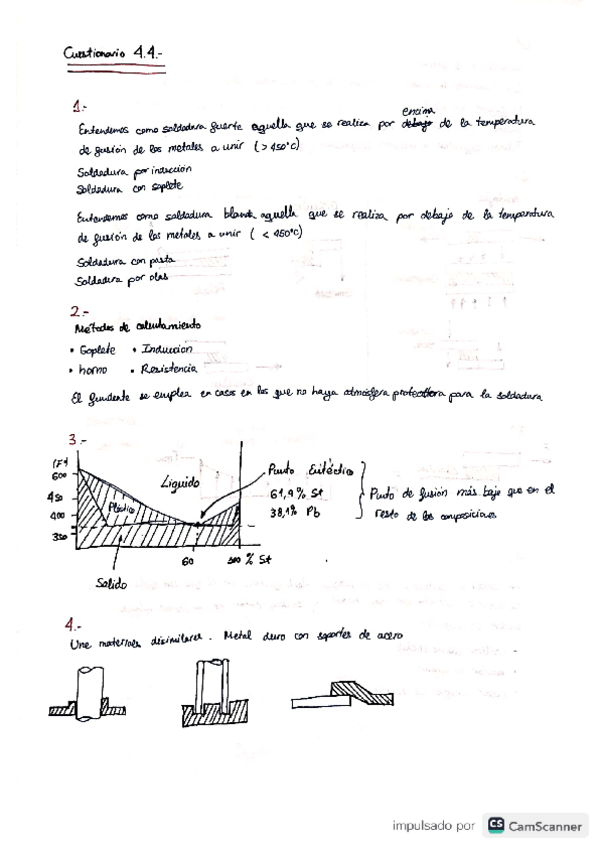 Cuestionario 4.4.-
1.-
encima
Entendemos como soldadura fuerte aquella que se realiza por debajo de la temperatura
de fusión de los metales a unir (> 450°C)
Soldadura por inducción
Soldadura con soplete
Entendemos como soldadura blanda aquella que se realiza por debajo de la temperatura
de fusión de los metales a unir ( < 450°C)
Soldadura con pasta
Soldadura por olas
2.-
Métodos de calentamiento
• Soplete • Inducción
• horno • Resistencia
El fundente se emplea en casos en los que no haya atmósfera protectora para la soldadura
3.-
600
450
400
350
Líquido
Plástico
Sólido
60 100 % St
Punto Eutéctico
61,9% St
38,1% Pb
Punto de fusión más bajo que en el
resto de las composiciones
4.-
Une materiales disimilares. Metal duro con soportes de acero
impulsado por CS CamScanner